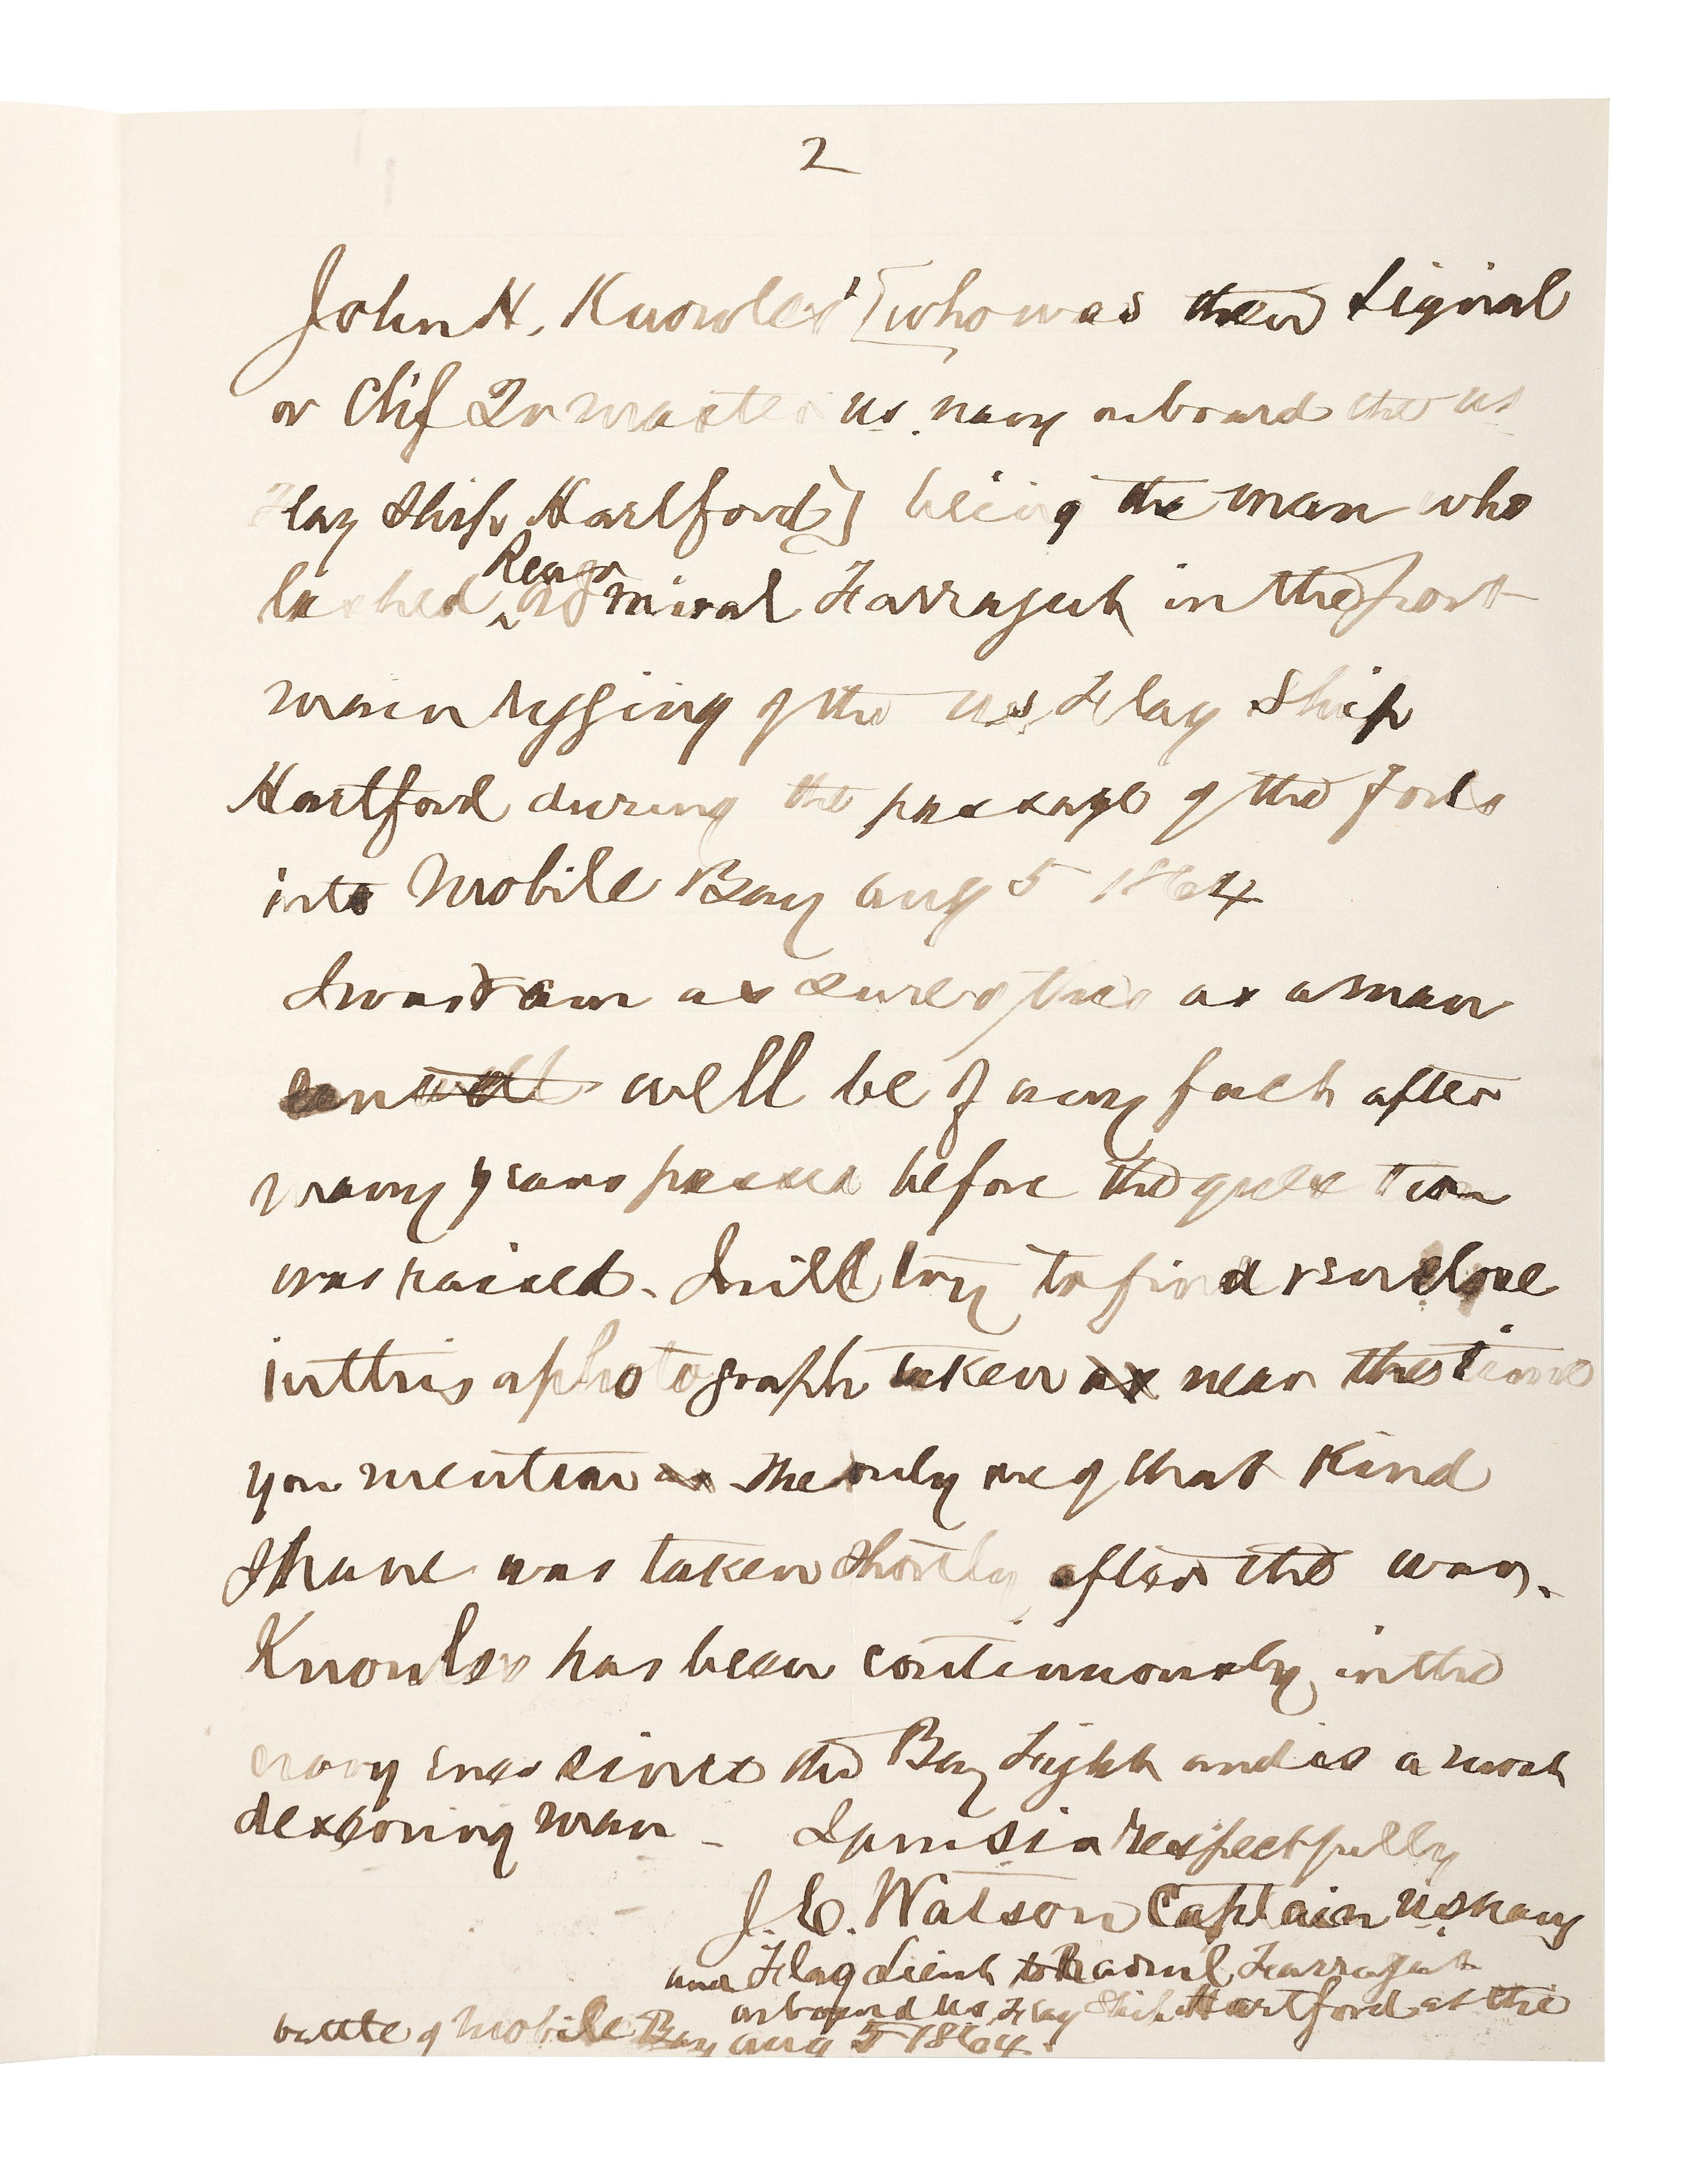 2
John H. Knowles [who was then Signal
or Chif Qr master US. navy onboard the US
Flag Ship Hartford] being the man who
lashed Rear admiral Farragut in the port
main rigging of the US Flag Ship
Hartford during the passage of the forts
into Mobile Bay aug 5 1864
I was & am as sure of this as a man
can well be of any fact after
many years passed before the question
was raised. I will try to find & enclose
in this a photograph taken near the time
you mention the only one of that kind
I have was taken shortly after the war.
Knowles has been continuously in the
navy ever since the Bay fight and is a most
deserving man - I am Sir respectfully
J. C. Watson Captain US Navy
and Flag Lieut to R adml Farragut
onboard US Flag Ship Hartford at the
battle of Mobile Bay aug 5 1864.